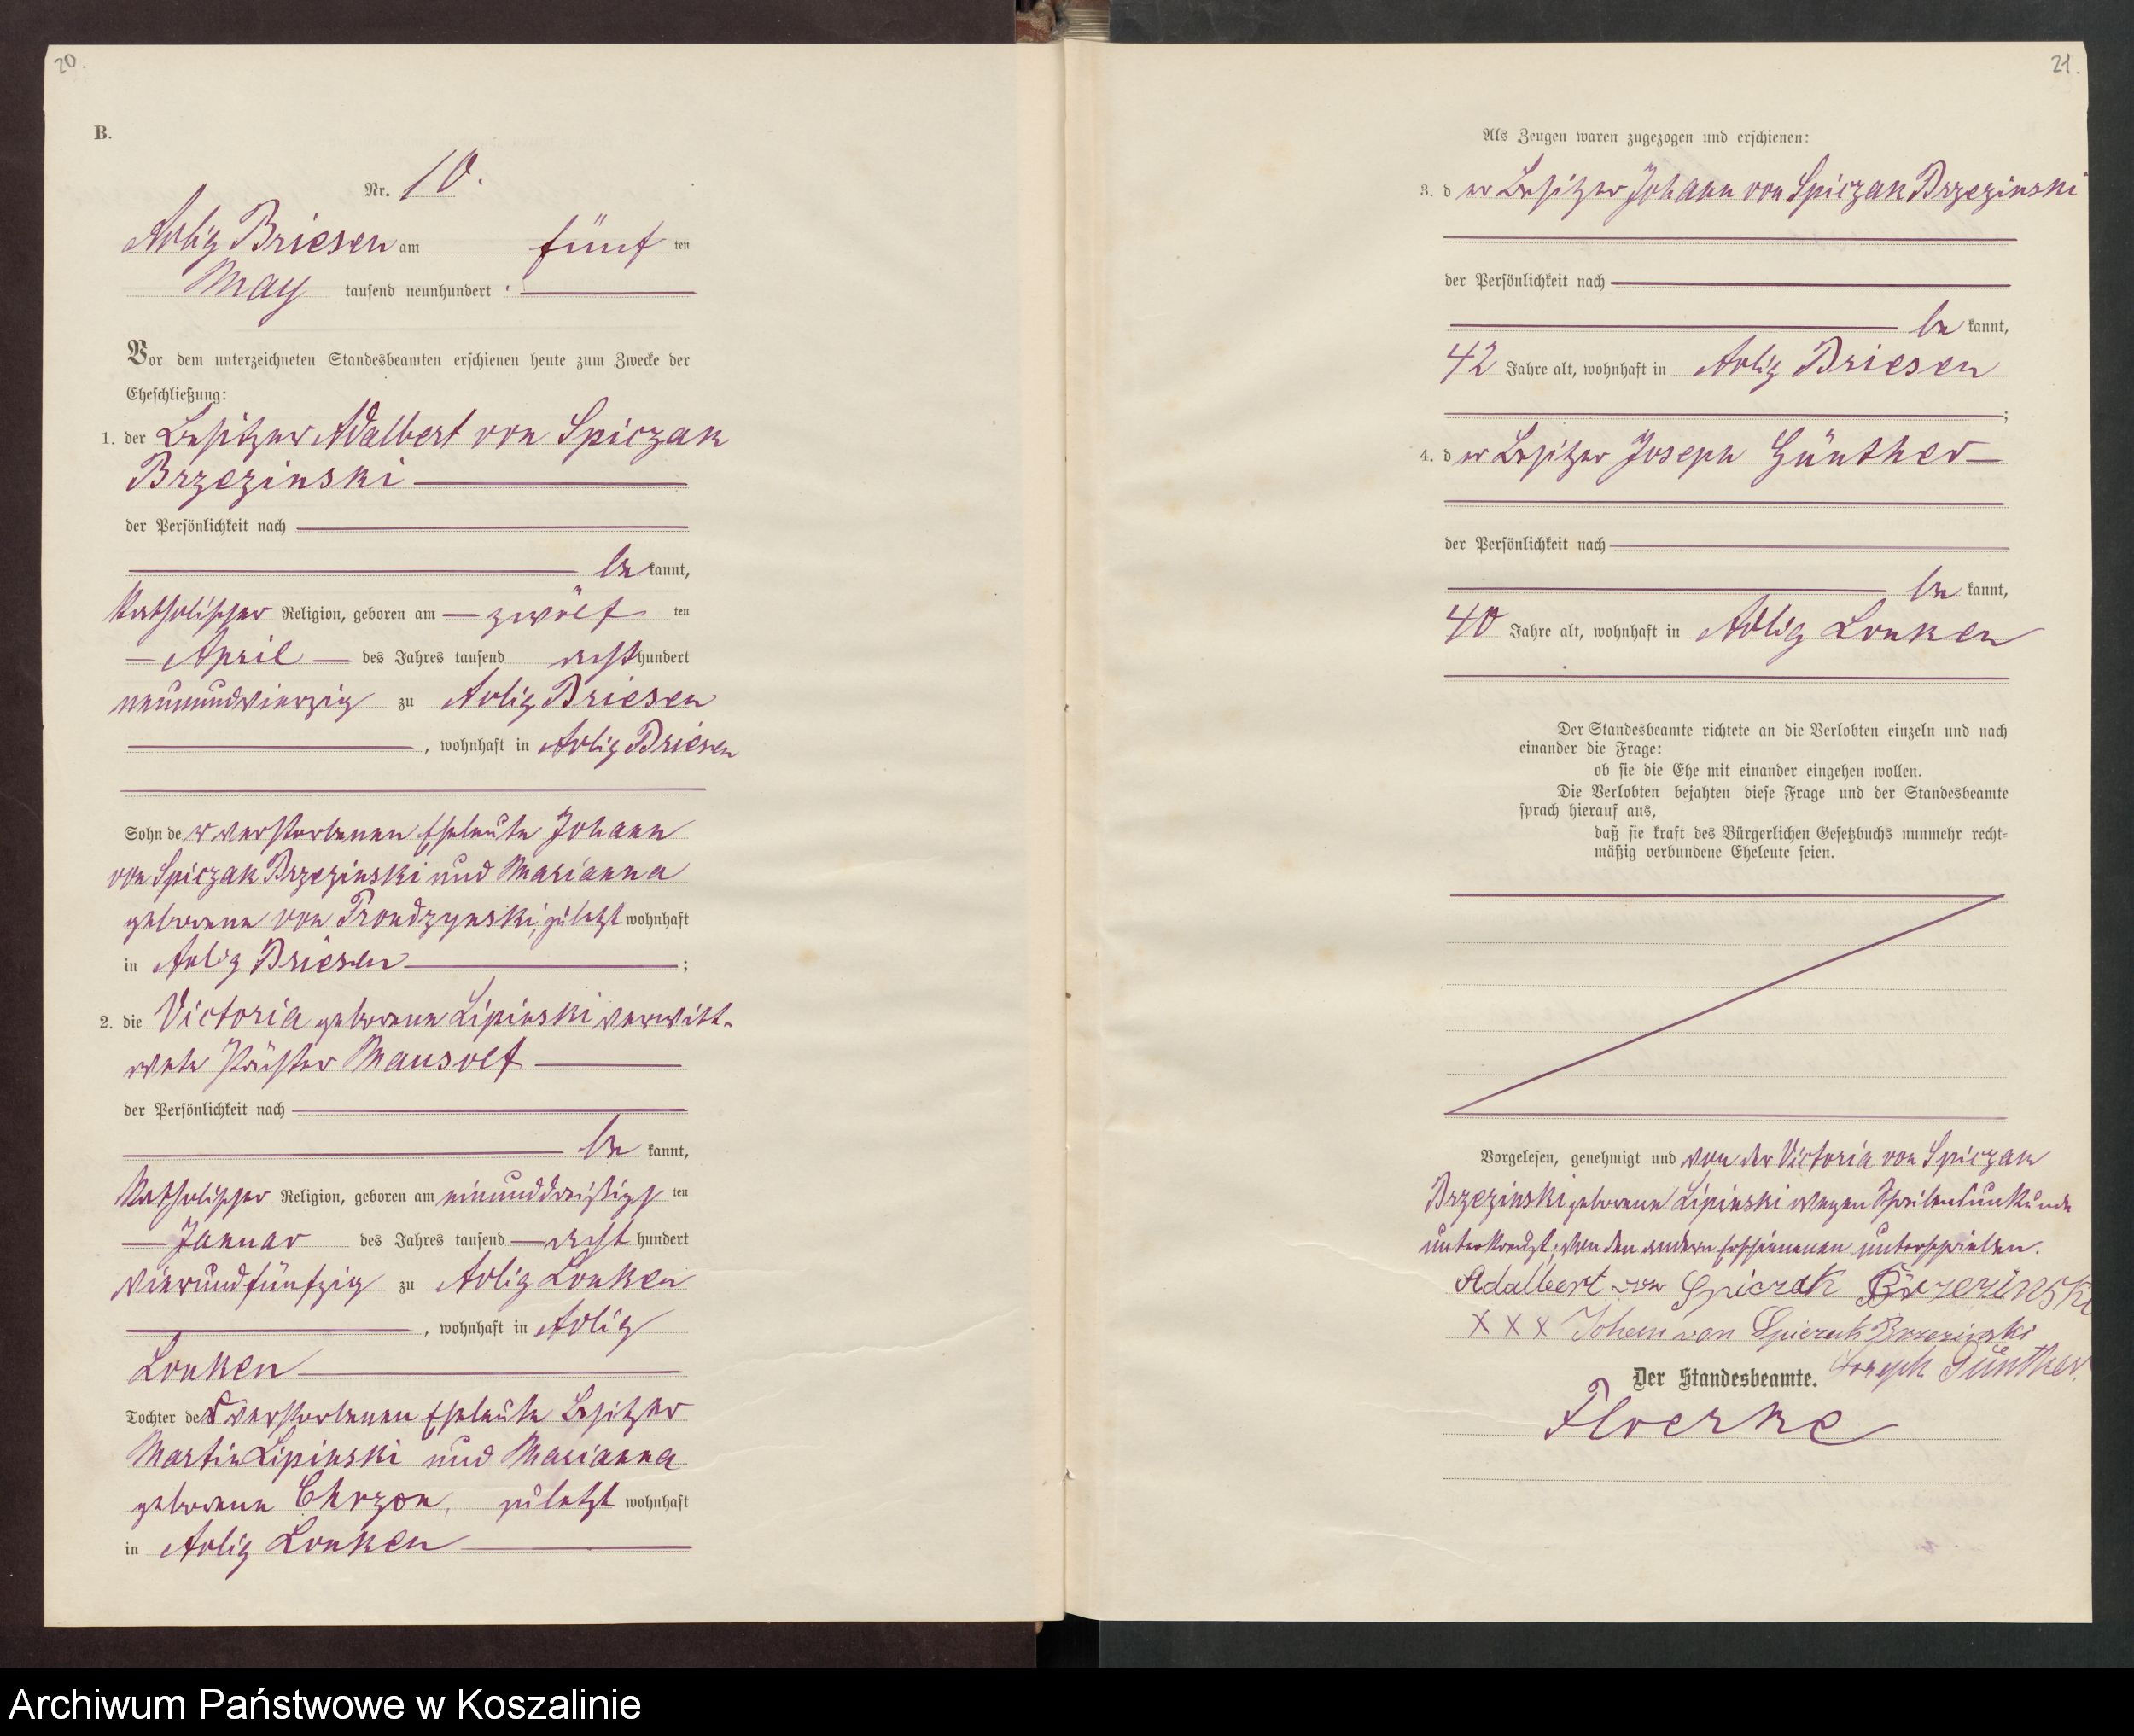 20.
B.
Nr. 10.
Adlig Briesen am fünf ten
May tausend neunhundert
Vor dem unterzeichneten Standesbeamten erschienen heute zum Zwecke der
Eheschließung:
1. der Besitzer Adalbert von Spiczak
Brzezinski
der Persönlichkeit nach
be kannt,
katholischer Religion, geboren am zwölf ten
April des Jahres tausend acht hundert
neunundvierzig zu Adlig Briesen
, wohnhaft in Adlig Briesen
Sohn der verstorbenen Eheleute Johann
von Spiczak Brzezinski und Marianna
geborene von Prondzynski, zuletzt wohnhaft
in Adlig Briesen ;
2. die Victoria geborene Lipinski verwitt-
wete Mausolf
der Persönlichkeit nach
be kannt,
katholischer Religion, geboren am einunddreißigs ten
Januar des Jahres tausend acht hundert
vierundfünfzig zu Adlig Lonken
, wohnhaft in Adlig
Lonken
Tochter der verstorbenen Eheleute Besitzer
Martin Lipinski und Marianna
geborene Chrzon, zuletzt wohnhaft
in Adlig Lonken
21.
Als Zeugen waren zugezogen und erschienen:
3. der Besitzer Johann von Spiczak Brzezinski
der Persönlichkeit nach
be kannt,
42 Jahre alt, wohnhaft in Adlig Briesen
;
4. der Besitzer Joseph Günther
der Persönlichkeit nach
be kannt,
40 Jahre alt, wohnhaft in Adlig Lonken
Der Standesbeamte richtete an die Verlobten einzeln und nach
einander die Frage:
ob sie die Ehe mit einander eingehen wollen.
Die Verlobten bejahten diese Frage und der Standesbeamte
sprach hierauf aus,
daß sie kraft des Bürgerlichen Gesetzbuchs nunmehr recht-
mäßig verbundene Eheleute seien.
Vorgelesen, genehmigt und von der Victoria von Spiczak
Brzezinski geborene Lipinski wegen Schreibensunkunde
unterkreuzt, von den andern Erschienenen unterschrieben.
Adalbert von Spiczak Brzezinski
X X X Johan von Spiczak Brzezinski
Joseph Günther.
Der Standesbeamte.
Floerke
Archiwum Państwowe w Koszalinie